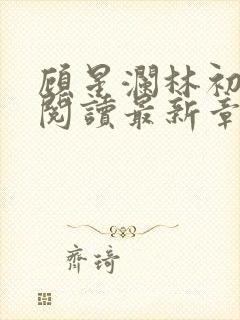 顾星瀾林初
閱讀最新章
齊琦